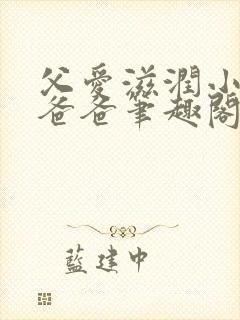 父愛滋潤小
爸爸筆趣閣
藍建中